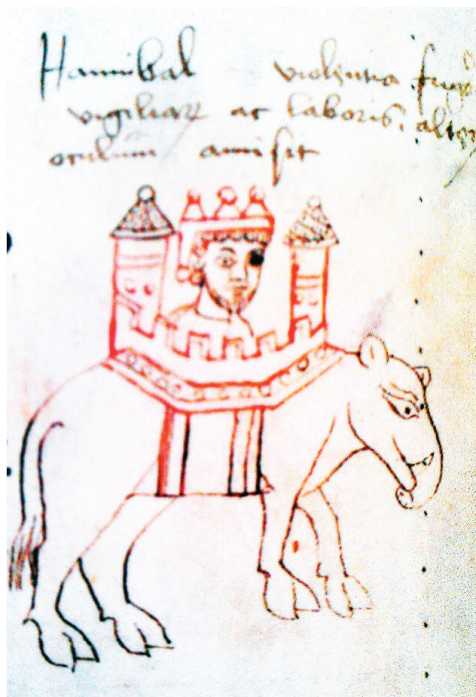 Hannibal violentia frigoris
vigiliarum ac laboris, alterum
oculum amisit